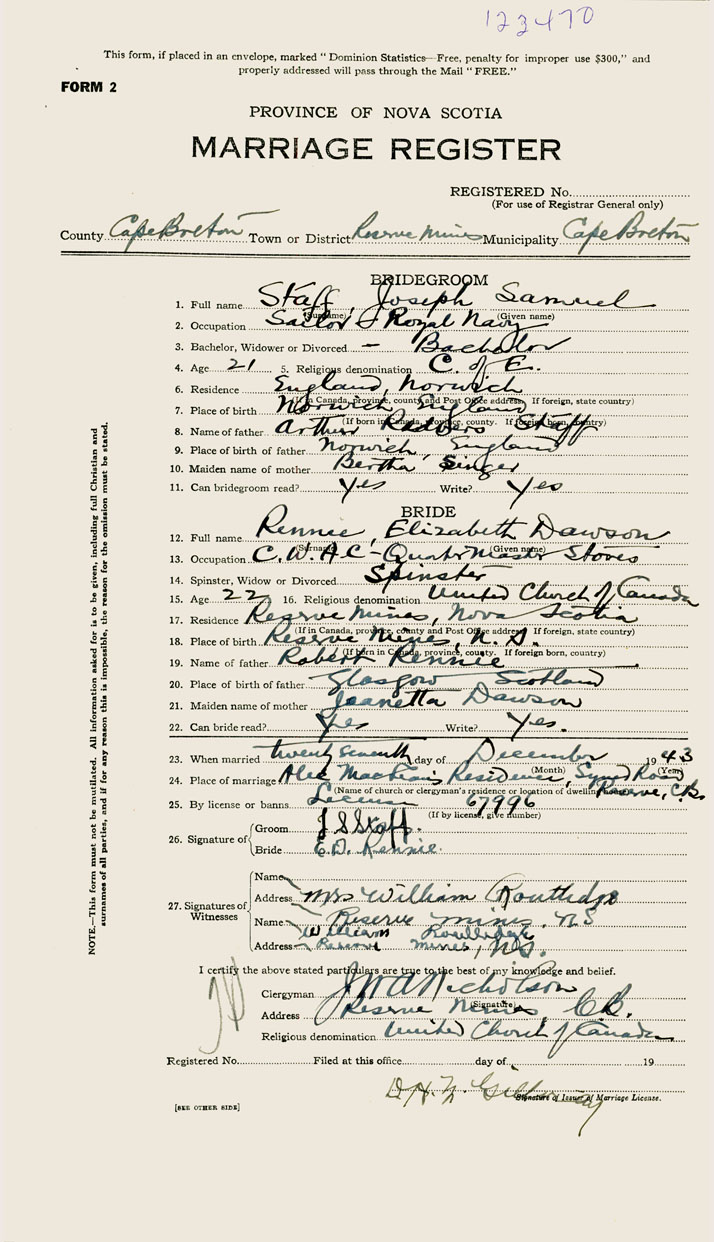 122470
This form, if placed in an envelope, marked "Dominion Statistics—Free, penalty for improper use $300," and
properly addressed will pass through the Mail "FREE."
FORM 2
PROVINCE OF NOVA SCOTIA
MARRIAGE REGISTER
REGISTERED No.
(For use of Registrar General only)
County Cape Breton Town or District Reserve Mines Municipality Cape Breton
BRIDEGROOM
1. Full name Staff, Joseph Samuel
(Surname) (Given name)
2. Occupation Sailor Royal Navy
3. Bachelor, Widower or Divorced — Bachelor
4. Age 21 5. Religious denomination C. of E.
6. Residence England, Norwich
(If in Canada, province, county and Post Office address. If foreign, state country)
7. Place of birth Norwich, England
(If born in Canada, province, county. If foreign born, country)
8. Name of father Arthur Staff
9. Place of birth of father Norwich, England
10. Maiden name of mother Bertha Singer
11. Can bridegroom read? Yes Write? Yes
BRIDE
12. Full name Rennie, Elizabeth Dawson
(Surname) (Given name)
13. Occupation C.W.A.C - Quarter Master Stores
14. Spinster, Widow or Divorced Spinster
15. Age 22 16. Religious denomination United Church of Canada
17. Residence Reserve Mines, Nova Scotia
(If in Canada, province, county and Post Office address. If foreign, state country)
18. Place of birth Reserve Mines, N.S.
(If born in Canada, province, county. If foreign born, country)
19. Name of father Robert Rennie
20. Place of birth of father Glasgow Scotland
21. Maiden name of mother Jeanetta Dawson
22. Can bride read? Yes Write? Yes.
23. When married twenty seventh day of December 1943
(Month) (Year)
24. Place of marriage Alex MacLean's Residence, Road
(Name of church or clergyman's residence or location of dwelling house) Reserve, C.B.
25. By license or banns License 67996
(If by license, give number)
26. Signature of
Groom J S Staff.
Bride E.D. Rennie.
27. Signatures of Witnesses
Name
Address Mrs William Routledge
Name Reserve Mines, NS
William Routledge
Address Reserve Mines, N.S.
I certify the above stated particulars are true to the best of my knowledge and belief.
Clergyman Nicholson
(Signature)
Address Reserve Mines, C.B.
Religious denomination United Church of Canada
Registered No. Filed at this office day of 19
Signature of Issuer of Marriage License.
[SEE OTHER SIDE]
NOTE.—This form must not be mutilated. All information asked for is to be given, including full Christian and
surnames of all parties, and if for any reason this is impossible, the reason for the omission must be stated.